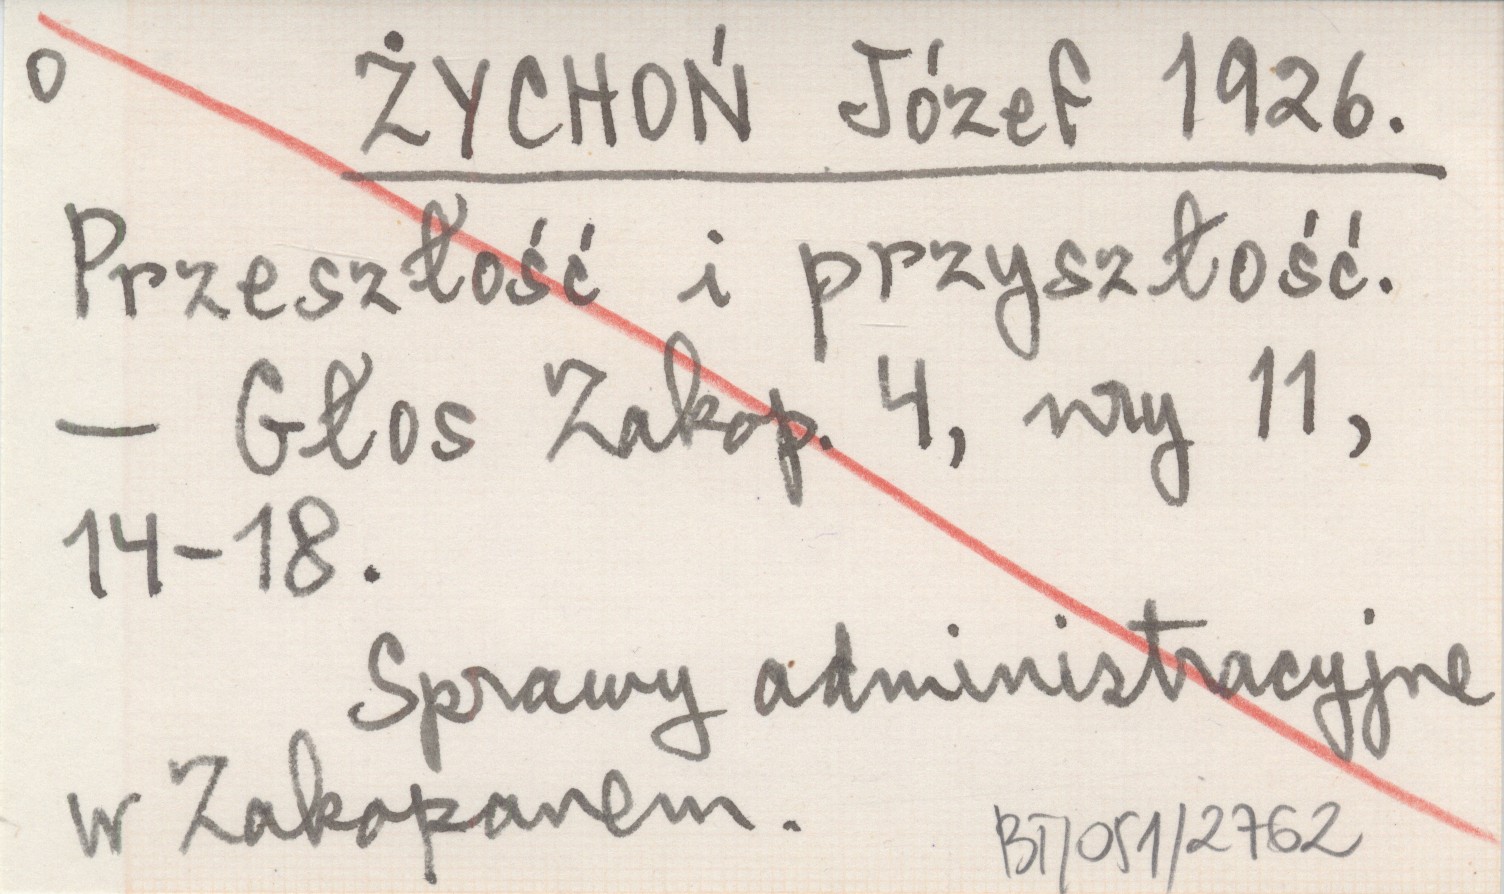 o ŻYCHOŃ Józef 1926.
Przeszłość i przyszłość.
— Głos Zakop. 4, nry 11,
14-18.
Sprawy administracyjne
w Zakopanem.
BT/051/2762